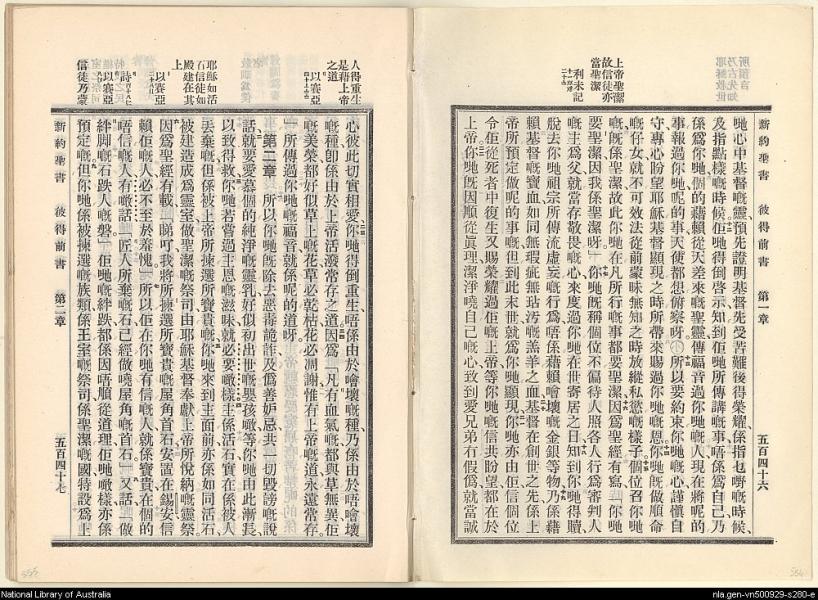 新約聖書 彼得前書 第一章 五百四十六
所預言乃古先知耶穌救世
上帝聖潔故信徒亦當聖潔
利未記
哋心中基督嘅靈預先證明基督先受苦難後得榮耀係指乜嘢嘅時候
及指點樣嘅時候佢哋得倒啓示知到佢哋所傳講嘅事唔係爲自己乃
係爲你哋個的藉賴從天差來嘅聖靈傳福音過你哋嘅人現在將呢的
事報過你哋呢的事天使都想俯察呀○所以要約束你哋嘅心謹愼自
守專心盼望耶穌基督顯現之時所帶來賜過你哋嘅恩你哋旣做順命
嘅仔女就不可效法從前蒙昧無知之時放縱私慾嘅樣子個位召你哋
嘅旣係聖潔故此你哋在凡所行嘅事都要聖潔因爲聖經有寫「你哋
要聖潔因我係聖潔呀」你哋旣稱個位不偏待人照各人行爲審判人
嘅主爲父就當存敬畏嘅心來度過你哋在世寄居之日知到你哋得贖
脫去你哋祖宗所傳流虛妄嘅行爲唔係藉賴會壞嘅金銀等物乃係藉
賴基督嘅寶血如同無瑕疵無玷汚嘅羔羊之血基督在創世之先係上
帝所預定做呢的事嘅但到此末世就爲你哋顯現你哋亦由佢信個位
令佢從死者中復生又賜榮耀過佢嘅上帝等你哋嘅信共盼望都在於
上帝你哋旣因順從眞理潔淨曉自己嘅心致到愛兄弟冇假僞就當誠
人得重生是藉上帝之道
以賽亞
耶穌如活石信徒如殿建在其上
以賽亞
詩
以賽亞
信徒乃蒙
心彼此切實相愛你哋得倒重生唔係由於會壞嘅種乃係由於唔會壞
嘅種卽係由於上帝活潑常存之道因爲「凡有血氣嘅都與草無異佢
嘅美榮都好似草上嘅花草必乾枯花必凋謝惟有上帝嘅道永遠常存」
所傳過你哋嘅福音就係呢的道呀
第二章 所以你哋旣除去惡毒詭詐及僞善妒忌共一切毀謗嘅說
話就要愛慕個的純淨嘅靈乳好似初出世嘅嬰孩噉等你哋由此漸長
以致得救你哋若嘗過主恩嘅滋味就必要噉樣主係活石實在係被人
丟棄嘅但係被上帝所揀選所寶貴嘅你哋來到主面前亦係如同活石
被建造成爲靈室做聖潔嘅祭司由耶穌基督奉獻上帝所悅納嘅靈祭
因爲聖經有載「睇吓我將所揀選所寶貴嘅屋角首石安置在錫安信
賴佢嘅人必不至於羞愧」所以佢在你哋有信嘅人就係寶貴在個的
唔信嘅人有噉話「匠人所棄嘅石已經做曉屋角嘅首石」又話「做
絆脚嘅石跌人嘅磐」佢哋嘅絆跌都係因唔順從道理佢哋噉樣亦係
預定嘅但你哋係被揀選嘅族類係王室嘅祭司係聖潔嘅國特設爲上
新約聖書 彼得前書 第二章 五百四十七
National Library of Australia
nla.gen-vn500929-s280-e